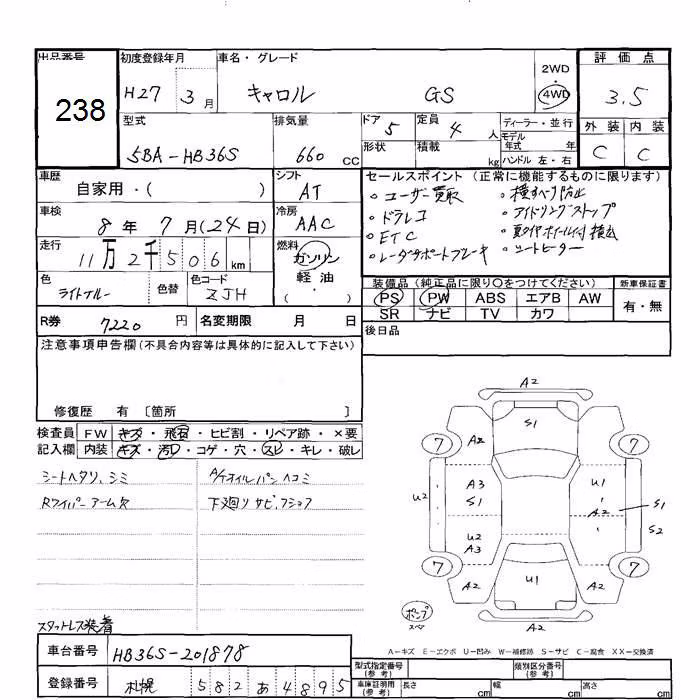 出品番号 初度登録年月 車名・グレード 評価点
238 H27 3月 キャロル GS 2WD・4WD 3.5
型式 排気量 ドア 5 定員 4人 ディーラー・並行 外装 内装
5BA-HB36S 660cc 形状 積載 kg モデル年式 年 ハンドル 左・右 C C
車歴 自家用・( ) シフト AT セールスポイント (正常に機能するものに限ります)
車検 8年 7月(24日) 冷房 AAC
・ユーザー買取 ・横すべり防止
・ドラレコ ・アイドリングストップ
・ETC ・夏タイヤホイール付積込
・レーダーサポートブレーキ ・シートヒーター
走行 11万2千506km 燃料 ガソリン 軽油 ・( )
色 ライトブルー 色替 色コード ZJH
装備品 (純正品に限り〇をつけてください) 新車保証書
PS PW ABS エアB AW 有・無
SR ナビ TV カワ
R券 7220円 名変期限 月 日 後日品
注意事項申告欄(不具合内容等は具体的に記入して下さい)
修復歴 有 〔箇所 〕
検査員 FW キズ・飛石・ヒビ割・リペア跡・×要
記入欄 内装 キズ・汚レ・コゲ・穴・スレ・キレ・破レ
シートヘタリ、シミ A/Tオイルパンヘコミ
Rワイパーアーム欠 下廻りサビ、
スタットレス装着
A2
S1
7 A2 7
A3 S1 U1
U2 A2 S1
S2
U2 A3
7 A2 U1 A2 7
A2
A-キズ E-エクボ U-凹み W-補修跡 S-サビ C-腐食 XX-交換済
車台番号 HB36S-201878
登録番号 札幌 582 あ 4895
型式指定番号 (参考) 類別区分番号 (参考)
車庫証明用 (参考) 長さ cm 幅 cm 高さ cm